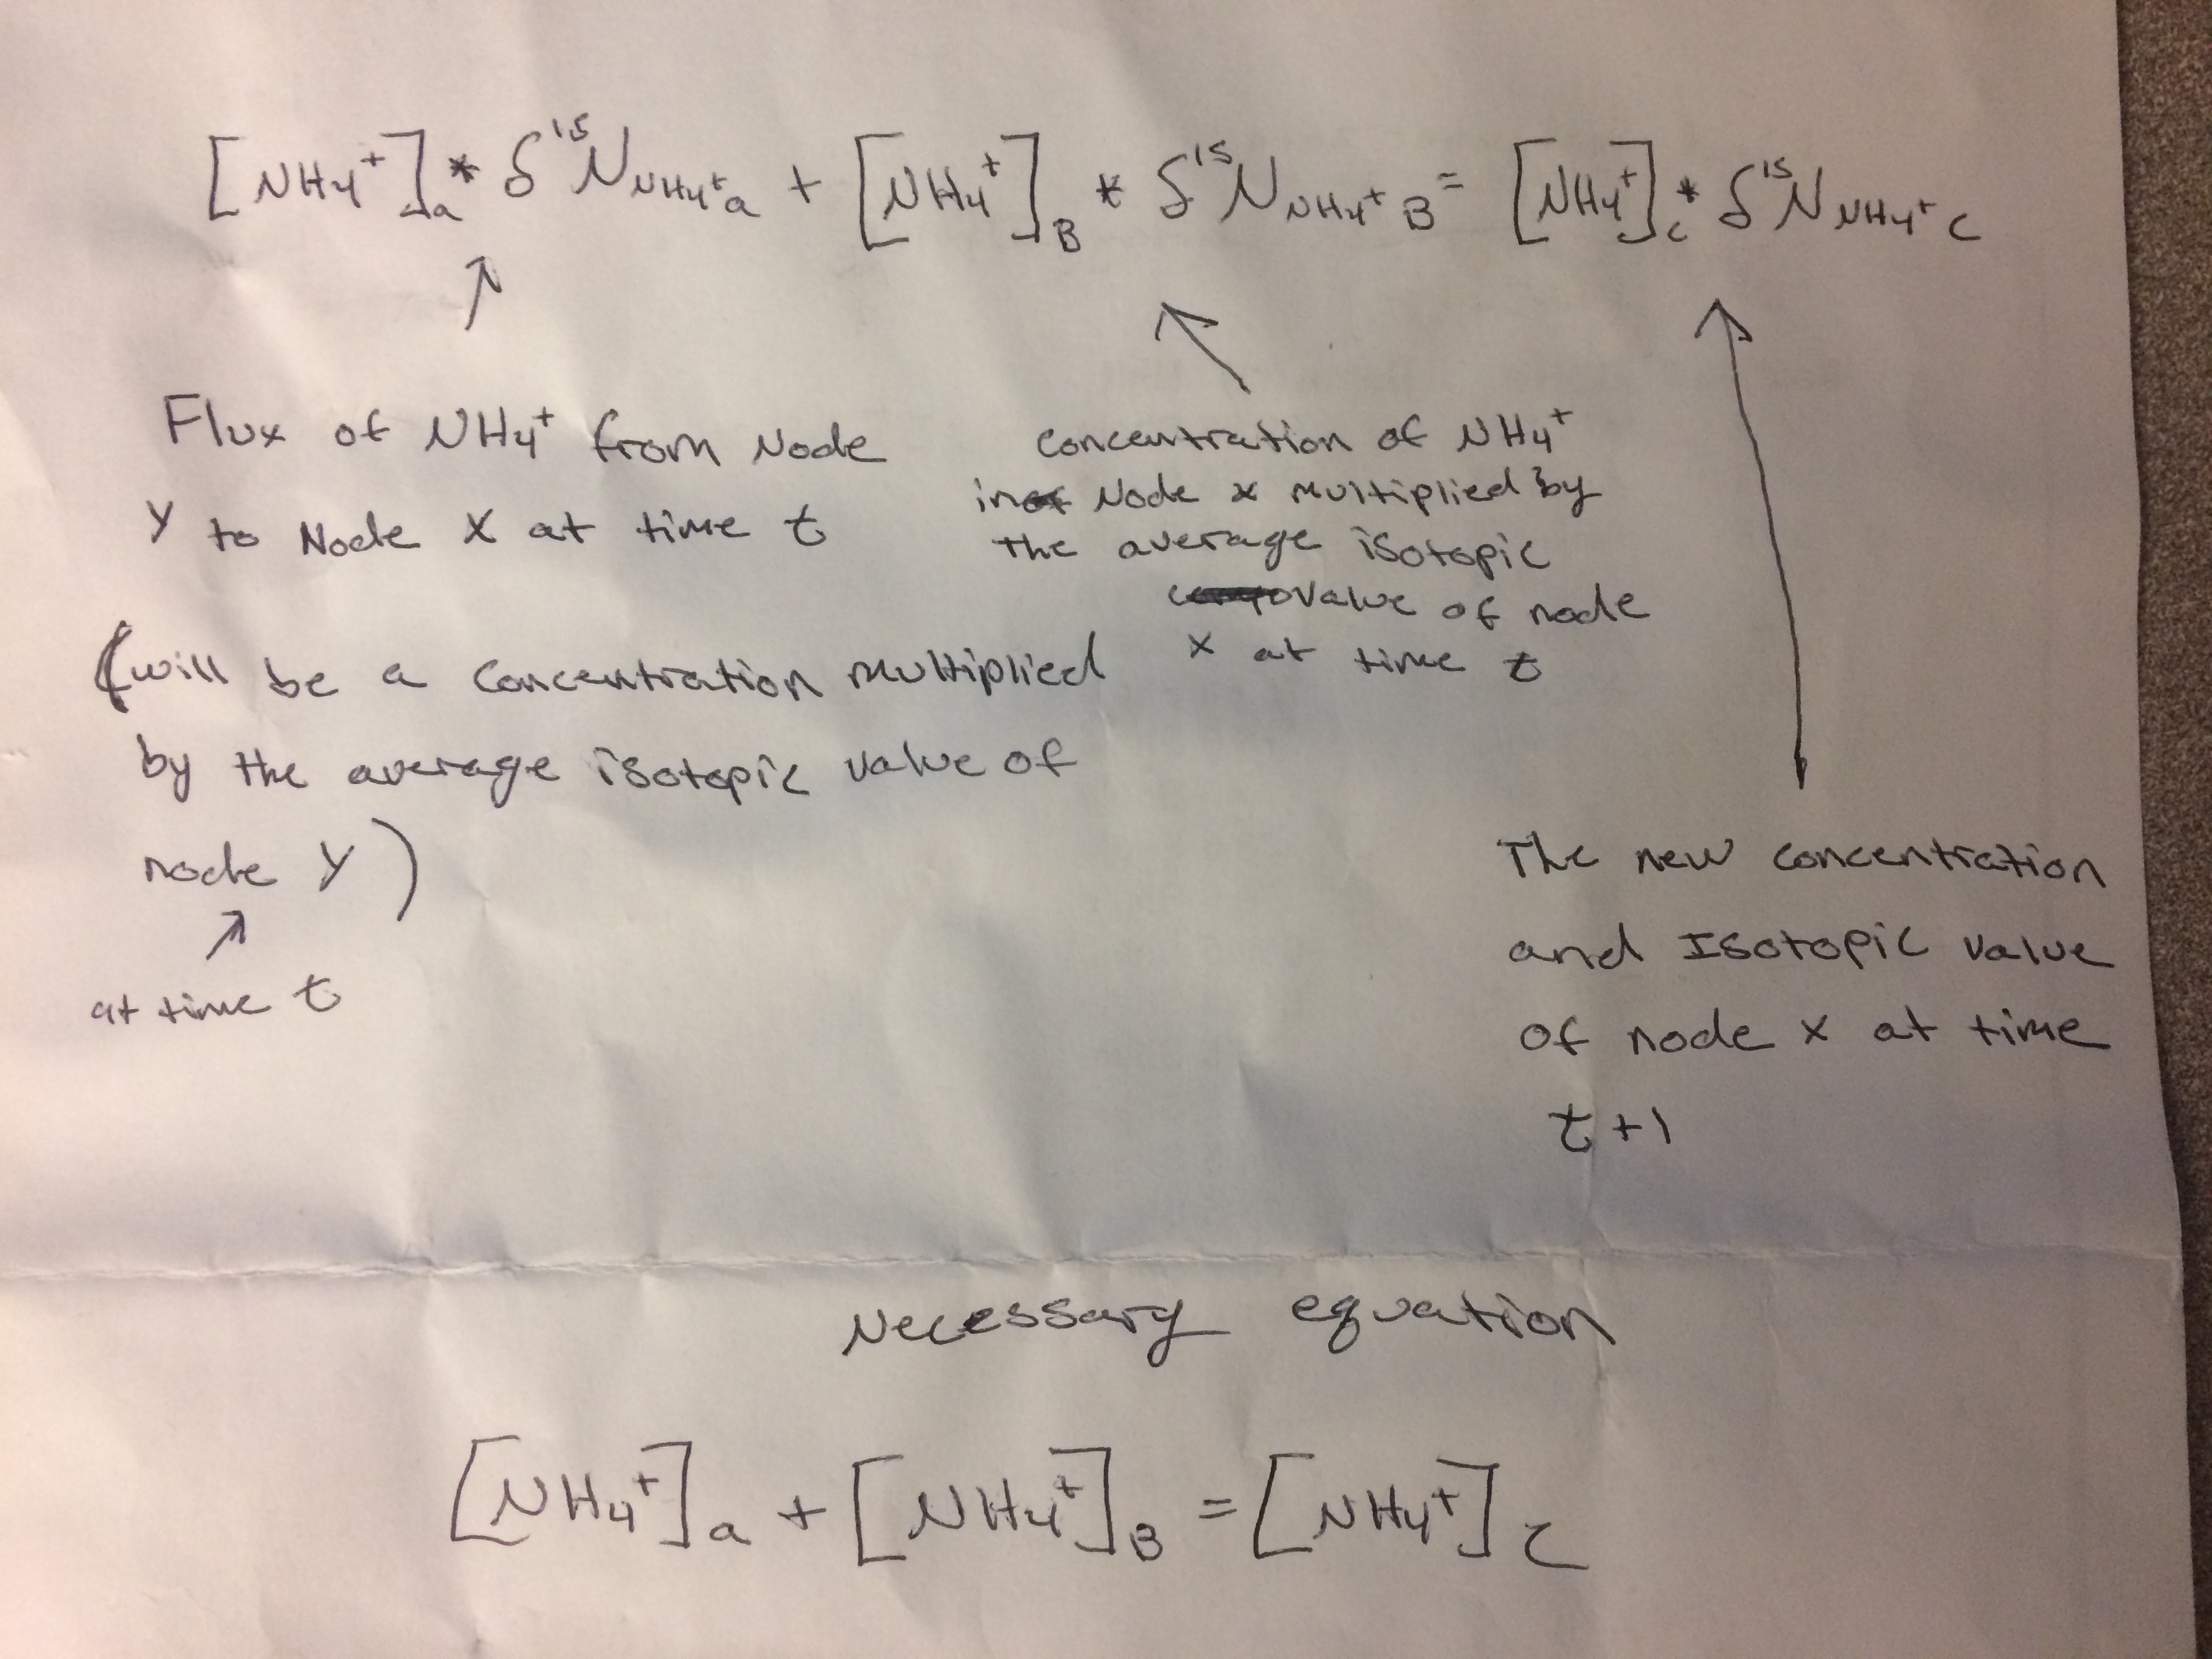 [NH4+]a * δ15N NH4+a + [NH4+]B * δ15N NH4+B = [NH4+]c * δ15N NH4+c
Flux of NH4+ from Node
Y to Node X at time t
(will be a concentration multiplied
by the average isotopic value of
node Y)
at time t
concentration of NH4+
in Node x multiplied by
the average isotopic
value of node
x at time t
The new concentration
and Isotopic value
of node x at time
t+1
Necessary equation
[NH4+]a + [NH4+]B = [NH4+]c